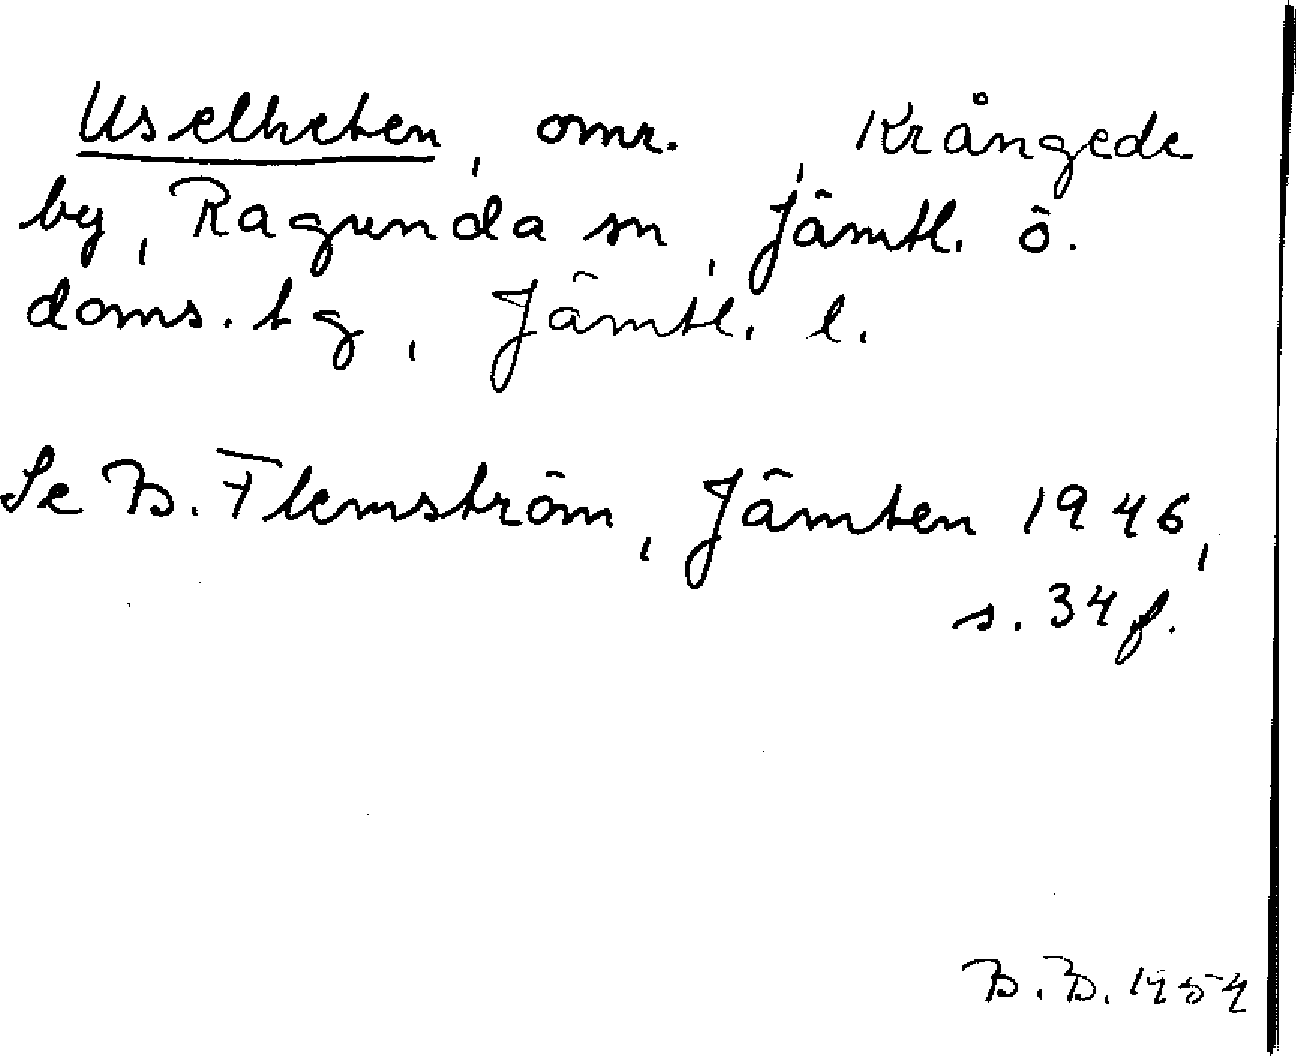 Uselheten, omr., Krångede
by, Ragunda sn, Jämtl. ö.
doms.tg, Jämtl. l.
Se B. Flemström, Jämten 1946,
s. 34 f.
B.B. 1954